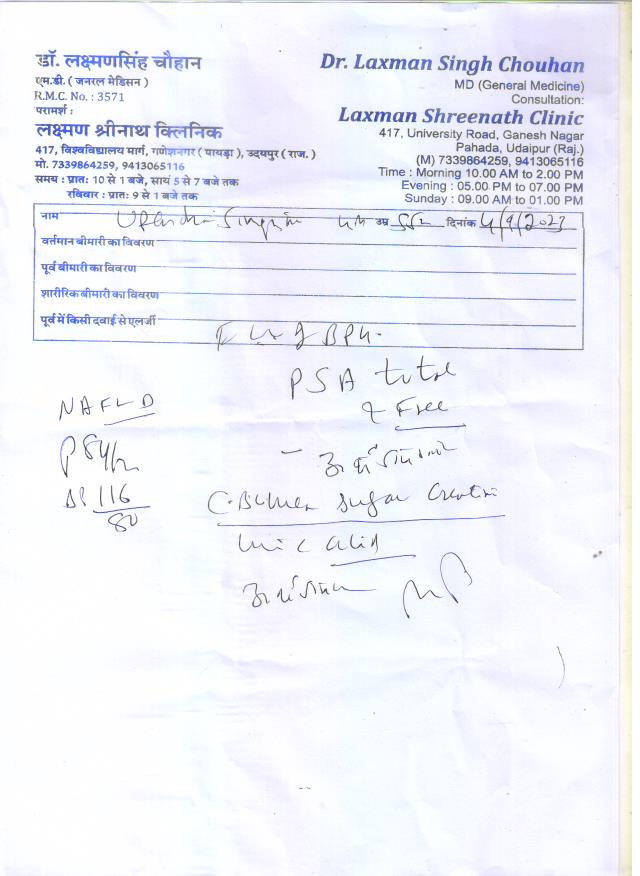 डॉ. लक्ष्मणसिंह चौहान
एम.डी. ( जनरल मेडिसन )
R.M.C. No. : 3571
परामर्श :
लक्ष्मण श्रीनाथ क्लिनिक
417, विश्वविद्यालय मार्ग, गणेशनगर ( पायड़ा ), उदयपुर ( राज. )
मो. 7339864259, 9413065116
समय : प्रातः 10 से 1 बजे, सायं 5 से 7 बजे तक
रविवार : प्रातः 9 से 1 बजे तक
Dr. Laxman Singh Chouhan
MD (General Medicine)
Consultation:
Laxman Shreenath Clinic
417, University Road, Ganesh Nagar
Pahada, Udaipur (Raj.)
(M) 7339864259, 9413065116
Time : Morning 10.00 AM to 2.00 PM
Evening : 05.00 PM to 07.00 PM
Sunday : 09.00 AM to 01.00 PM
नाम उम्र दिनांक 4/9/2023
वर्तमान बीमारी का विवरण
पूर्व बीमारी का विवरण
शारीरिक बीमारी का विवरण
पूर्व में किसी दवाई से एलर्जी
BPH
PSA total
& Free
NAFLD
P 84/m
BP 116/80
Sugar Creatin
Uric acid